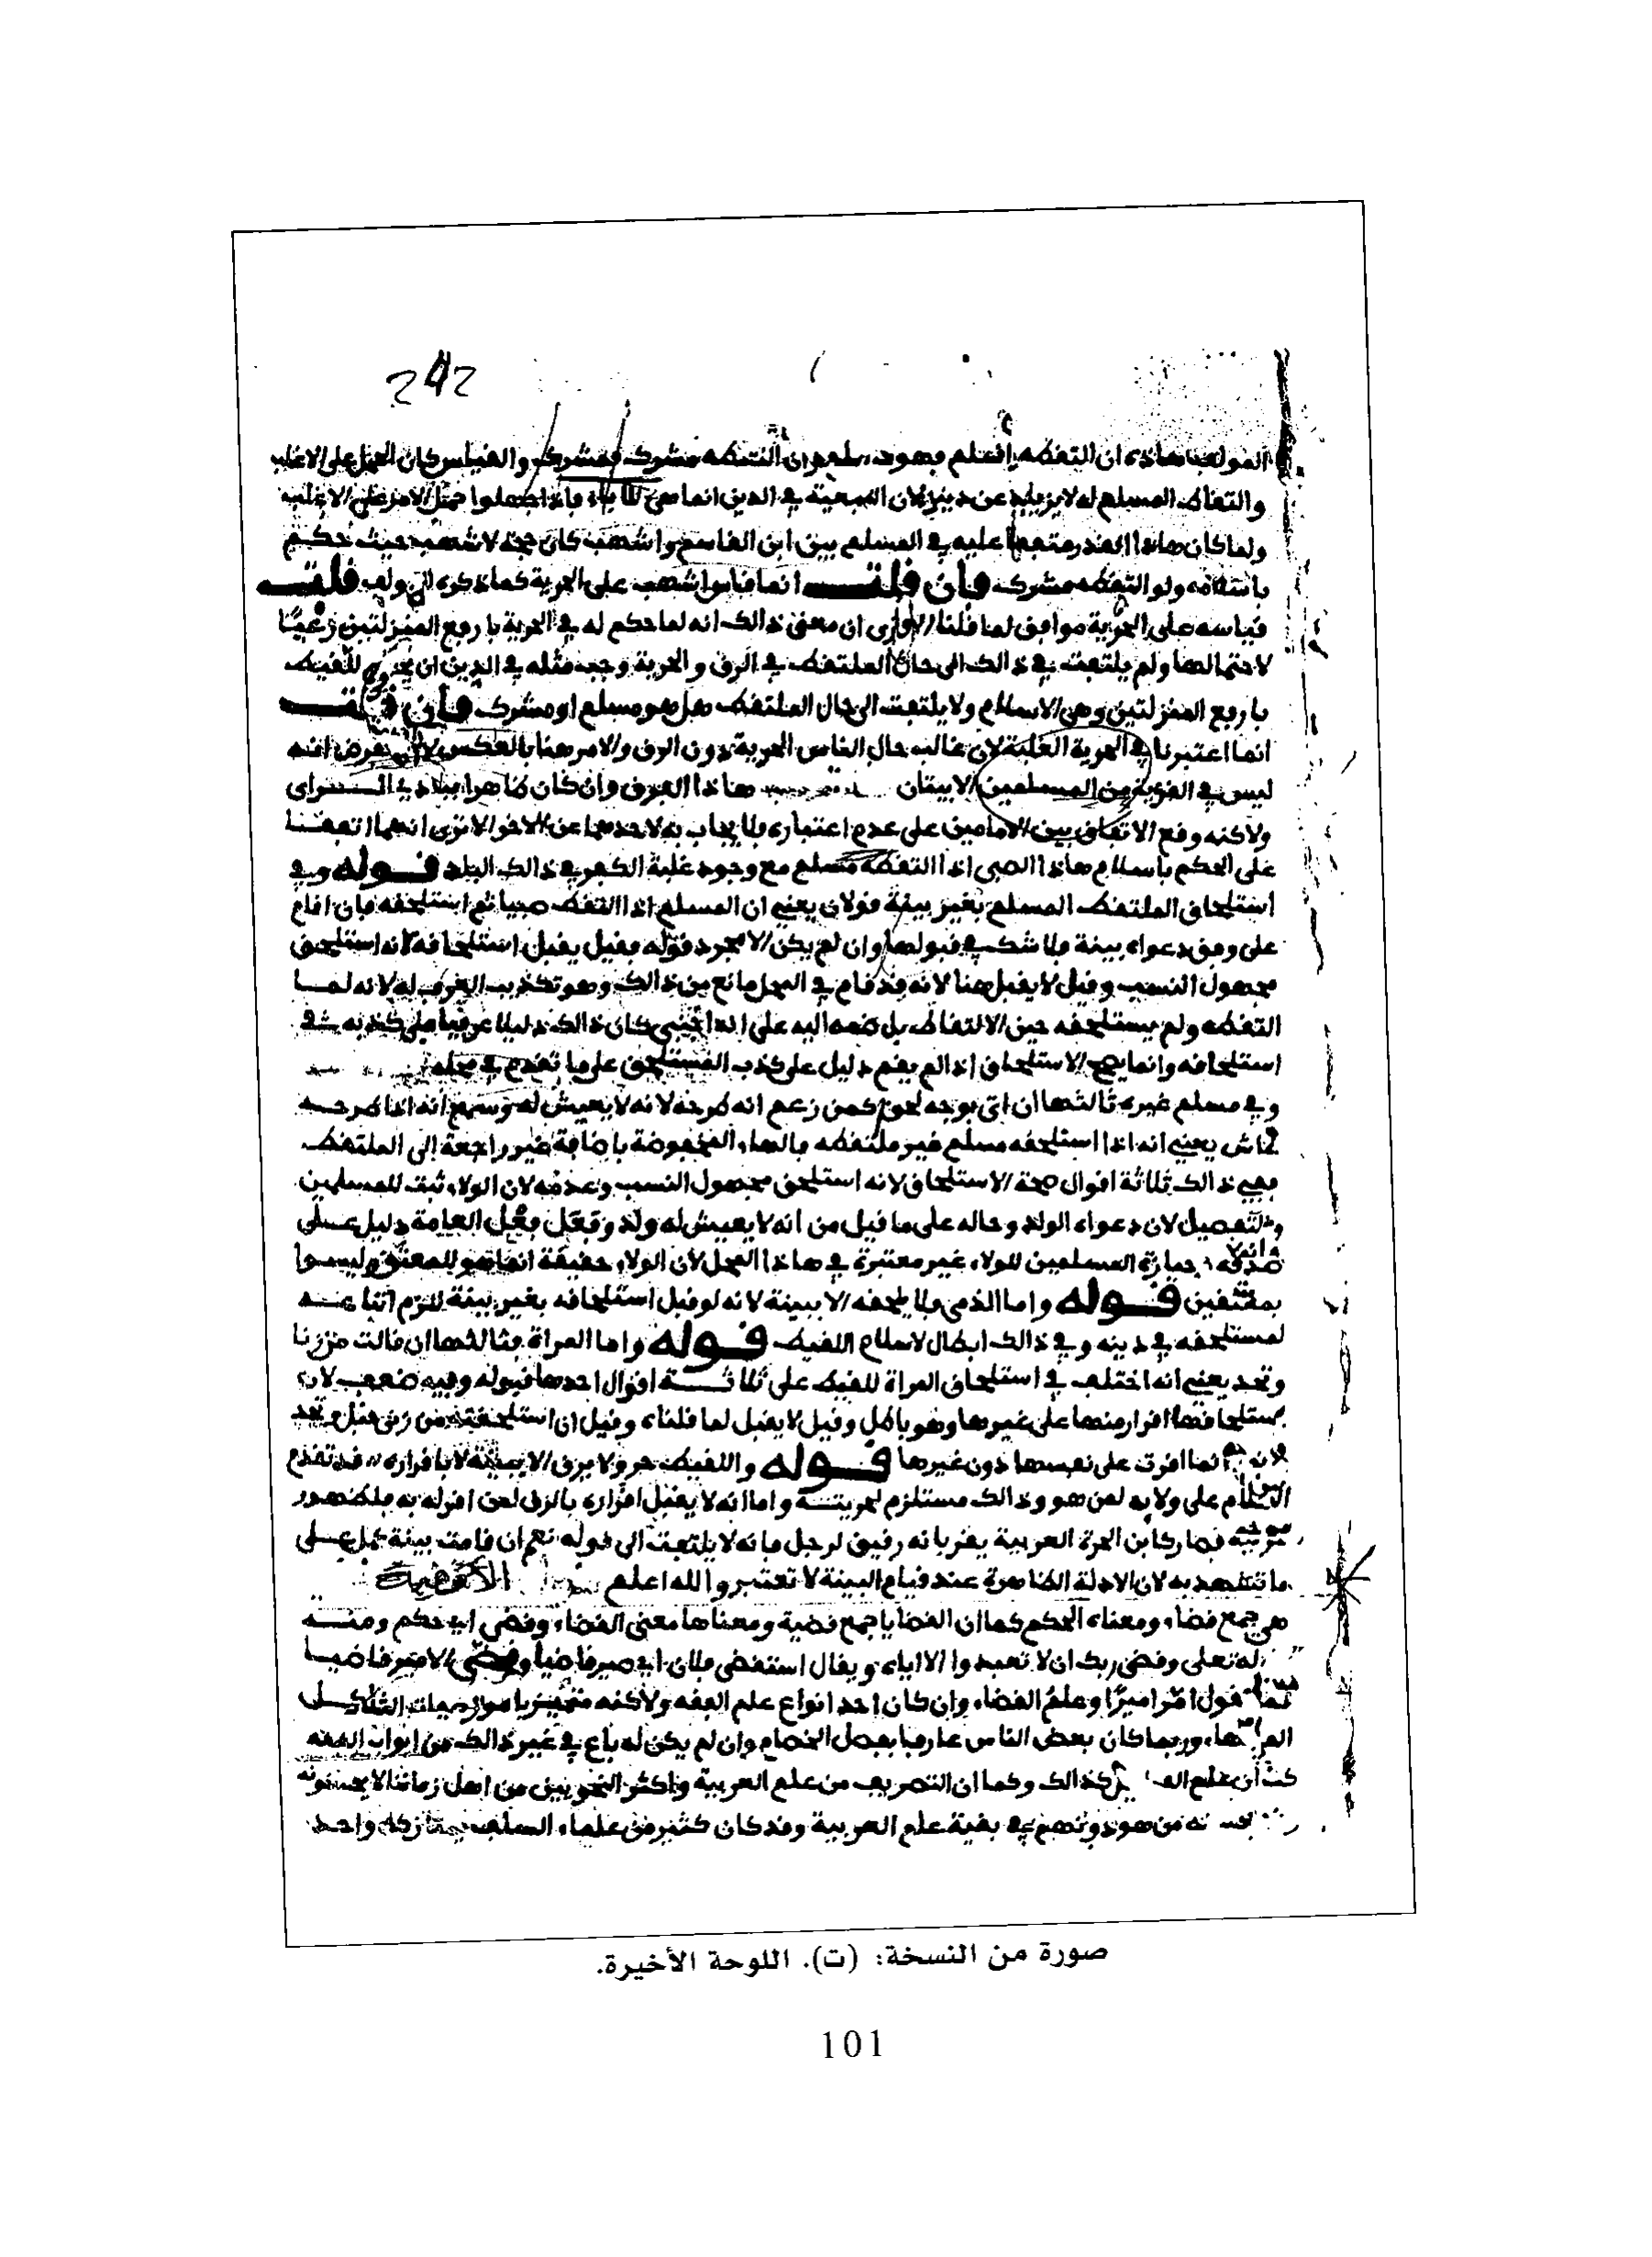 242
المولف هاذه ان التقطه مسلم فهو مسلم وان التقطه مشرك فمشرك والقياس كان الحمل على الاغلب
والتقاط المسلم له لا يزيله عن دينه لان التبعية في الدين انما هي للاباء فاذا جهلوا حمل الامر على الاغلب
ولما كان هاذا القدر متفقا عليه في المسلم بين ابن القاسم واشهب كان حجة لاشهب حيث حكم
باسلامه ولو التقطه مشرك فان قلت انما قاس اشهب على الحرية كما ذكره المولف قلت
قياسه على الحرية موافق لما قلنا الا ترى ان معنى ذالك انه لما حكم له في الحرية بارفع المنزلتين
لاحتمالها ولم يلتفت في ذالك الى حال الملتقط في الرق والحرية وجب مثله في الدين ان للقيط
بارفع المنزلتين وهي الاسلام ولا يلتفت الى حال الملتقط هل هو مسلم او مشرك فان قلت
انما اعتبرنا في الحرية الغلبة لان غالب حال الناس الحرية دون الرق والامر هنا بالعكس نفرض انه
ليس في القرية من المسلمين الا بيتان هاذا الفرق وان كان ظاهرا
ولاكنه وقع الاتفاق بين الامامين على عدم اعتباره فلا يجاب به لاحدهما عن الاخر الا ترى انهما اتفقا
على الحكم باسلام هاذا الصبي اذا التقطه مسلم مع وجود غلبة الكفر في ذالك البلد قوله وفي
استلحاق الملتقط المسلم بغير بينة قولان يعني ان المسلم اذا التقط صبيا ثم استلحقه فان اقام
على وفق دعواه بينة فلا شك في قبولها وان لم يكن الا مجرد قوله فقيل يقبل استلحاقه لانه استلحق
مجهول النسب وقيل لا يقبل هنا لانه قد قام في المحل مانع من ذالك وهو تكذيب العرف له لانه لما
التقطه ولم يستلحقه حين الالتقاط بل ضمه اليه على انه اجنبي كان ذالك دليلا عرفيا على كذبه في
استلحاقه وانما يصح الاستلحاق اذا لم يقم دليل على كذب المستلحق على ما تقدم في محله
وفي مسلم غيره ثالثها ان اتى بوجه لحق كمن زعم انه طرحه لانه لا يعيش له وسمع انه اذا طرحه
عاش يعني انه اذا استلحقه مسلم غير ملتقطه بالهاء المخفوضة باضافة غير راجعة الى الملتقط
ففي ذالك ثلاثة اقوال صحة الاستلحاق لانه استلحق مجهول النسب وعدمه لان الولاء ثبت للمسلمين
والتفصيل لان دعواه الولد وحاله على ما قيل من انه لا يعيش له ولد وفعل فعل العامة دليل على
صدقه حيازة المسلمين للولاء غير معتبرة في هاذا المحل لان الولاء حقيقة انما هو للمعتق وليسوا
بمعتقين قوله واما الذمي فلا يلحقه الا ببينة لانه لو قبل استلحاقه بغير بينة للزم اتباعه
لمستلحقه في دينه وفي ذالك ابطال لاسلام اللقيط قوله واما المراة فثالثها ان قالت من زنا
وتحد يعني انه اختلف في استلحاق المراة للقيط على ثلاثة اقوال احدها قبوله وفيه ضعف لان
استلحاقها اقرار منها على غيرها وهو باطل وقيل لا يقبل لما قلناه وقيل ان استلحقته من زنى قبل وتحد
لانها انما اقرت على نفسها دون غيرها قوله واللقيط حر ولا يرق الا ببينة لا باقراره قد تقدم
الكلام على ولايه لمن هو وذالك مستلزم لحريته واما انه لا يقبل اقراره بالرق لمن اقر له به فلظهور
حريته فصار كابن الحرة العربية يقر بانه رقيق لرجل فانه لا يلتفت الى قوله نعم ان قامت بينة عمل على
ما تشهد به لان الادلة الظاهرة عند قيام البينة لا تعتبر والله اعلم الاقضية
هي جمع قضاء ومعناه الحكم كما ان القضايا جمع قضية ومعناها معنى القضاء وقضى اي حكم ومنه
قوله تعلى وقضى ربك ان لا تعبدوا الا اياه ويقال استقضى فلان اي صير قاضيا وقضى الامير قاضيا
كما تقول امر اميرا وعلم القضاء وان كان احد انواع علم الفقه ولاكنه متميز بامور
الفقهاء وربما كان بعض الناس عارفا بفصل الخصام وان لم يكن له باع في غير ذالك من ابواب الفقه
كذالك وكما ان التصريف من علم العربية واكثر النحويين من اهل زماننا لا يحسنونه
من هو دونهم في بقية علم العربية وقد كان كثير من علماء السلف واحد
صورة من النسخة: (ت). اللوحة الأخيرة.
101